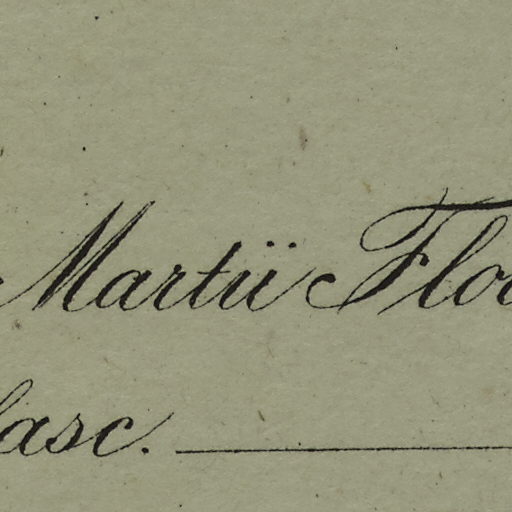 Martii Flo
asc.